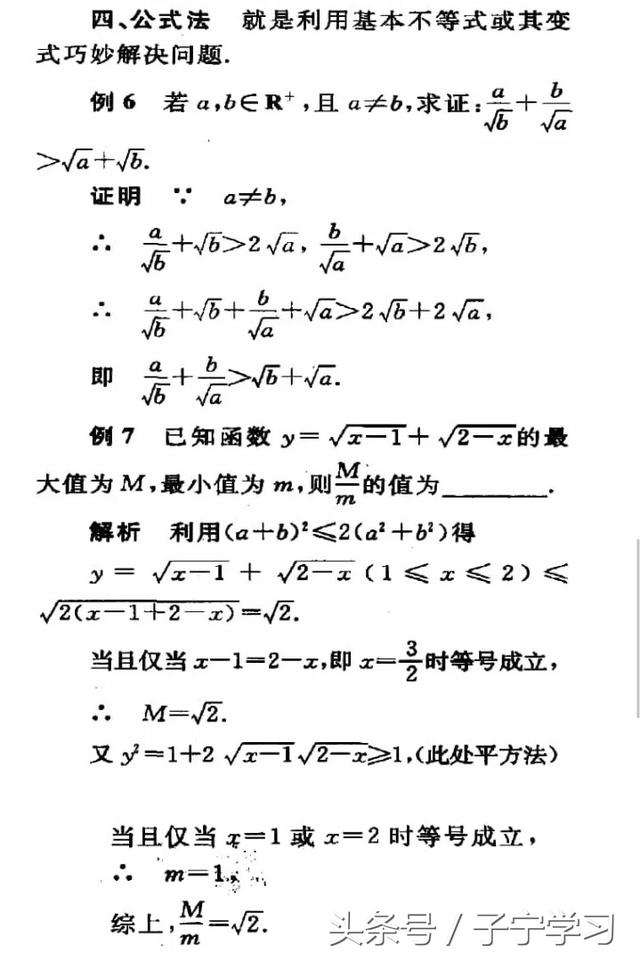 四、公式法 就是利用基本不等式或其变
式巧妙解决问题.
例 6 若 a,b∈R⁺,且 a≠b,求证:a/√b+b/√a
>√a+√b.
证明 ∵ a≠b,
∴ a/√b+√b>2√a, b/√a+√a>2√b,
∴ a/√b+√b+b/√a+√a>2√b+2√a,
即 a/√b+b/√a>√b+√a.
例 7 已知函数 y=√(x-1)+√(2-x)的最
大值为 M,最小值为 m,则M/m的值为________.
解析 利用(a+b)²≤2(a²+b²)得
y=√(x-1)+√(2-x)(1≤x≤2)≤
√(2(x-1+2-x))=√2.
当且仅当 x-1=2-x,即 x=3/2时等号成立,
∴ M=√2.
又 y²=1+2√(x-1)√(2-x)≥1,(此处平方法)
当且仅当 x=1 或 x=2 时等号成立,
∴ m=1,
综上,M/m=√2.
头条号 / 子宁学习